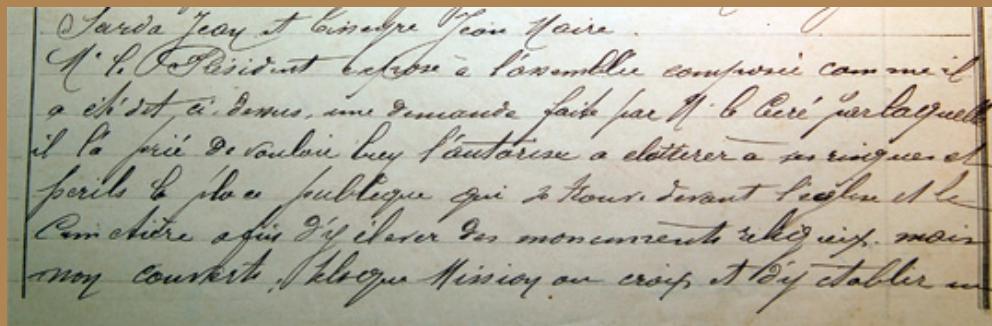 Sarda Jean et Cissegre Jean Maire.
Mr le Président expose à l'assemblée composée comme il
a été dit ci-dessus, une demande faite par Mr le Curé par laquelle
il l'a prié de vouloir bien l'autorise a cloturer a ses risques et
perils la place publique qui se trouve devant l'église et le
Cimetière afin d'y élever des monuments religieux. mais
non couverts, telsque Mission ou croix et d'y etablir un